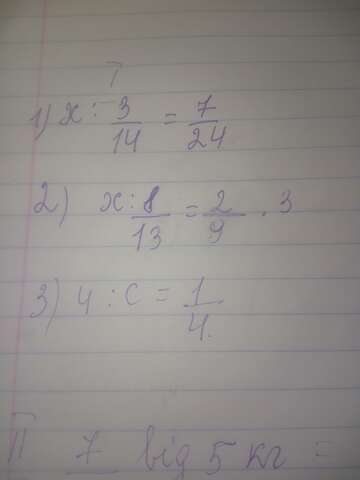 1) x : 3/14 = 7/24
2) x : 8/13 = 2/9 . 3
3) 4 : C = 1/4.
II 7 від 5 кг =